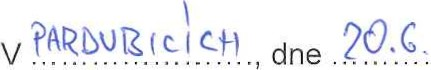 V PARDUBICÍCH, dne 20.6.